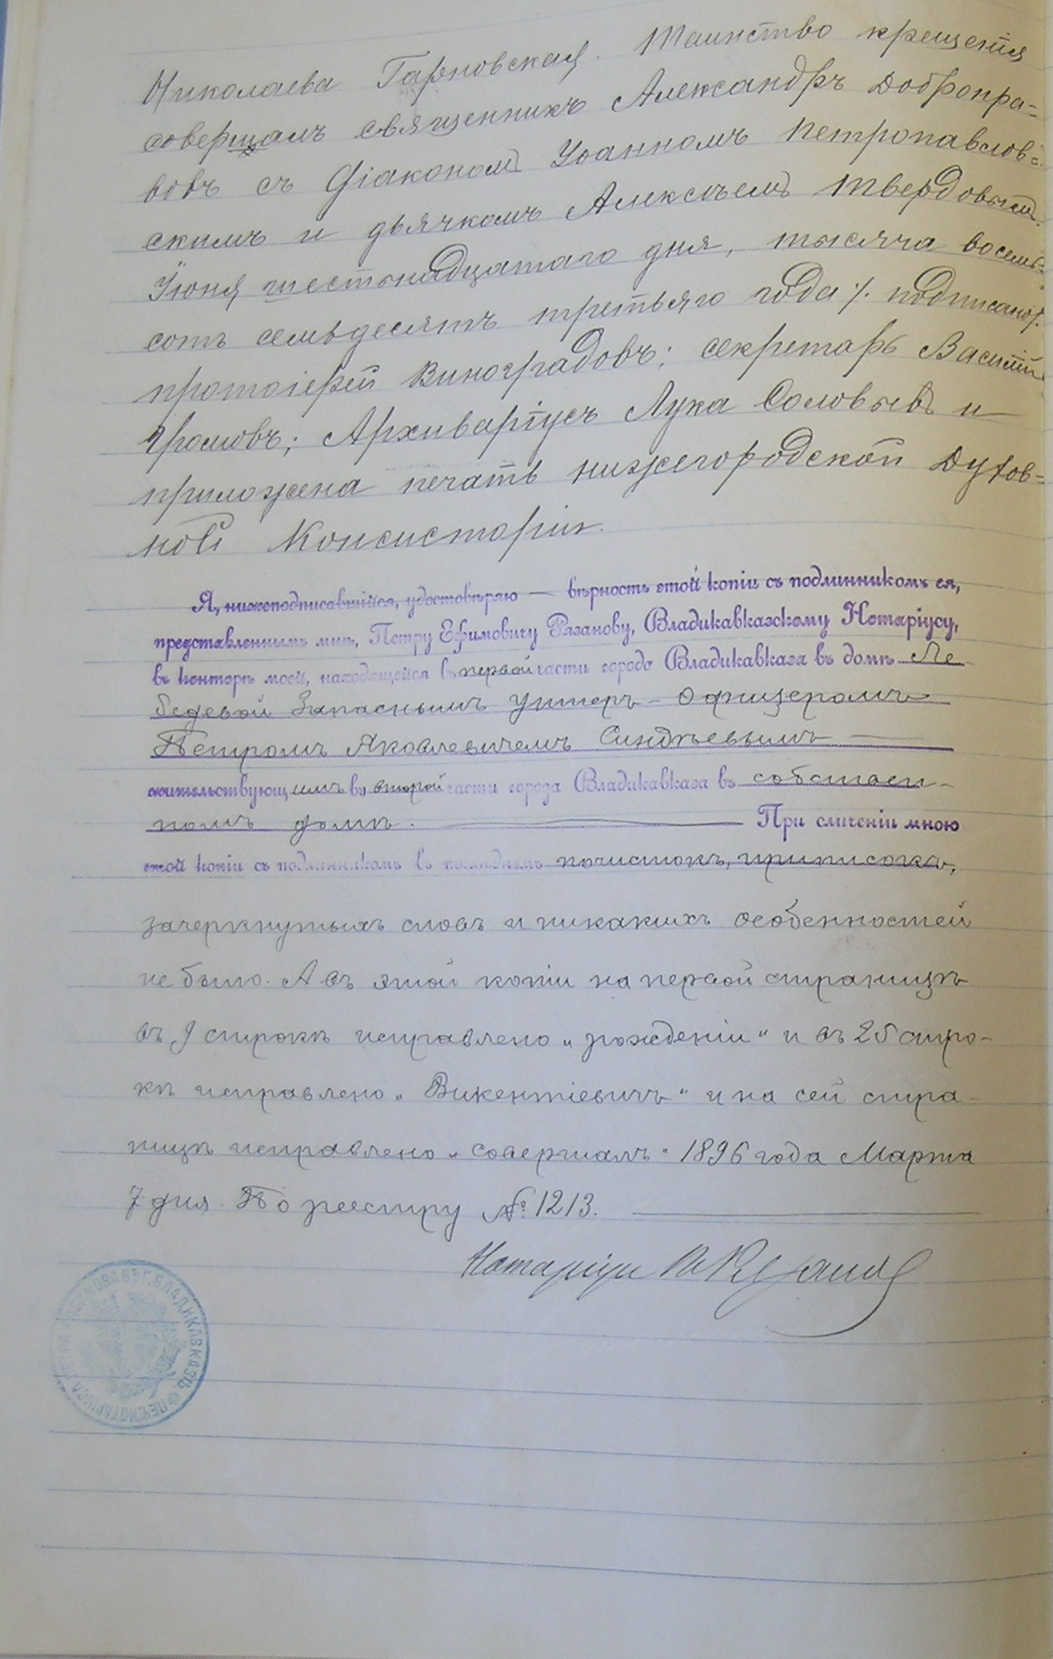 Николаева Гарновская. Таинство крещенія
совершалъ священникъ Александръ Добропра=
вовъ съ Діакономъ Іоанномъ Петропавлов=
скимъ и дьячкомъ Алексѣемъ Твердовымъ
Іюня шестьнадцатаго дня, тысяча восемь=
сотъ семьдесятъ третьяго года ./. подписано ./.
протоіерей Виноградовъ; секретарь Василій
Громовъ; Архиваріусъ Лука Соловьевъ и
приложена печать Нижегородской Духов=
ной Консисторіи.
Я, нижеподписавшійся, удостовѣряю — вѣрность этой копіи съ подлинникомъ ея,
представленнымъ мнѣ, Петру Ефимовичу Рязанову, Владикавказскому Нотаріусу,
въ конторѣ моей, находящейся въ первой части города Владикавказа въ домѣ Ле
бедевой Запаснымъ Унтеръ-Офицеромъ
Петромъ Яковлевичемъ Синдѣевымъ
жительствующимъ во второй части города Владикавказа въ собствен-
номъ домѣ. При сличеніи мною
этой копіи съ подлинникомъ въ послѣднемъ почистокъ, приписокъ,
зачеркнутыхъ словъ и никакихъ особенностей
не было. А въ этой копіи на первой страницѣ
въ 9 строкѣ исправлено „рожденіи“ и въ 25 стро-
кѣ исправлено „Викентіевичъ“ и на сей стра-
ницѣ исправлено „совершалъ“ 1896 года Марта
7 дня. По реестру № 1213.
Нотаріусъ П Рязановъ